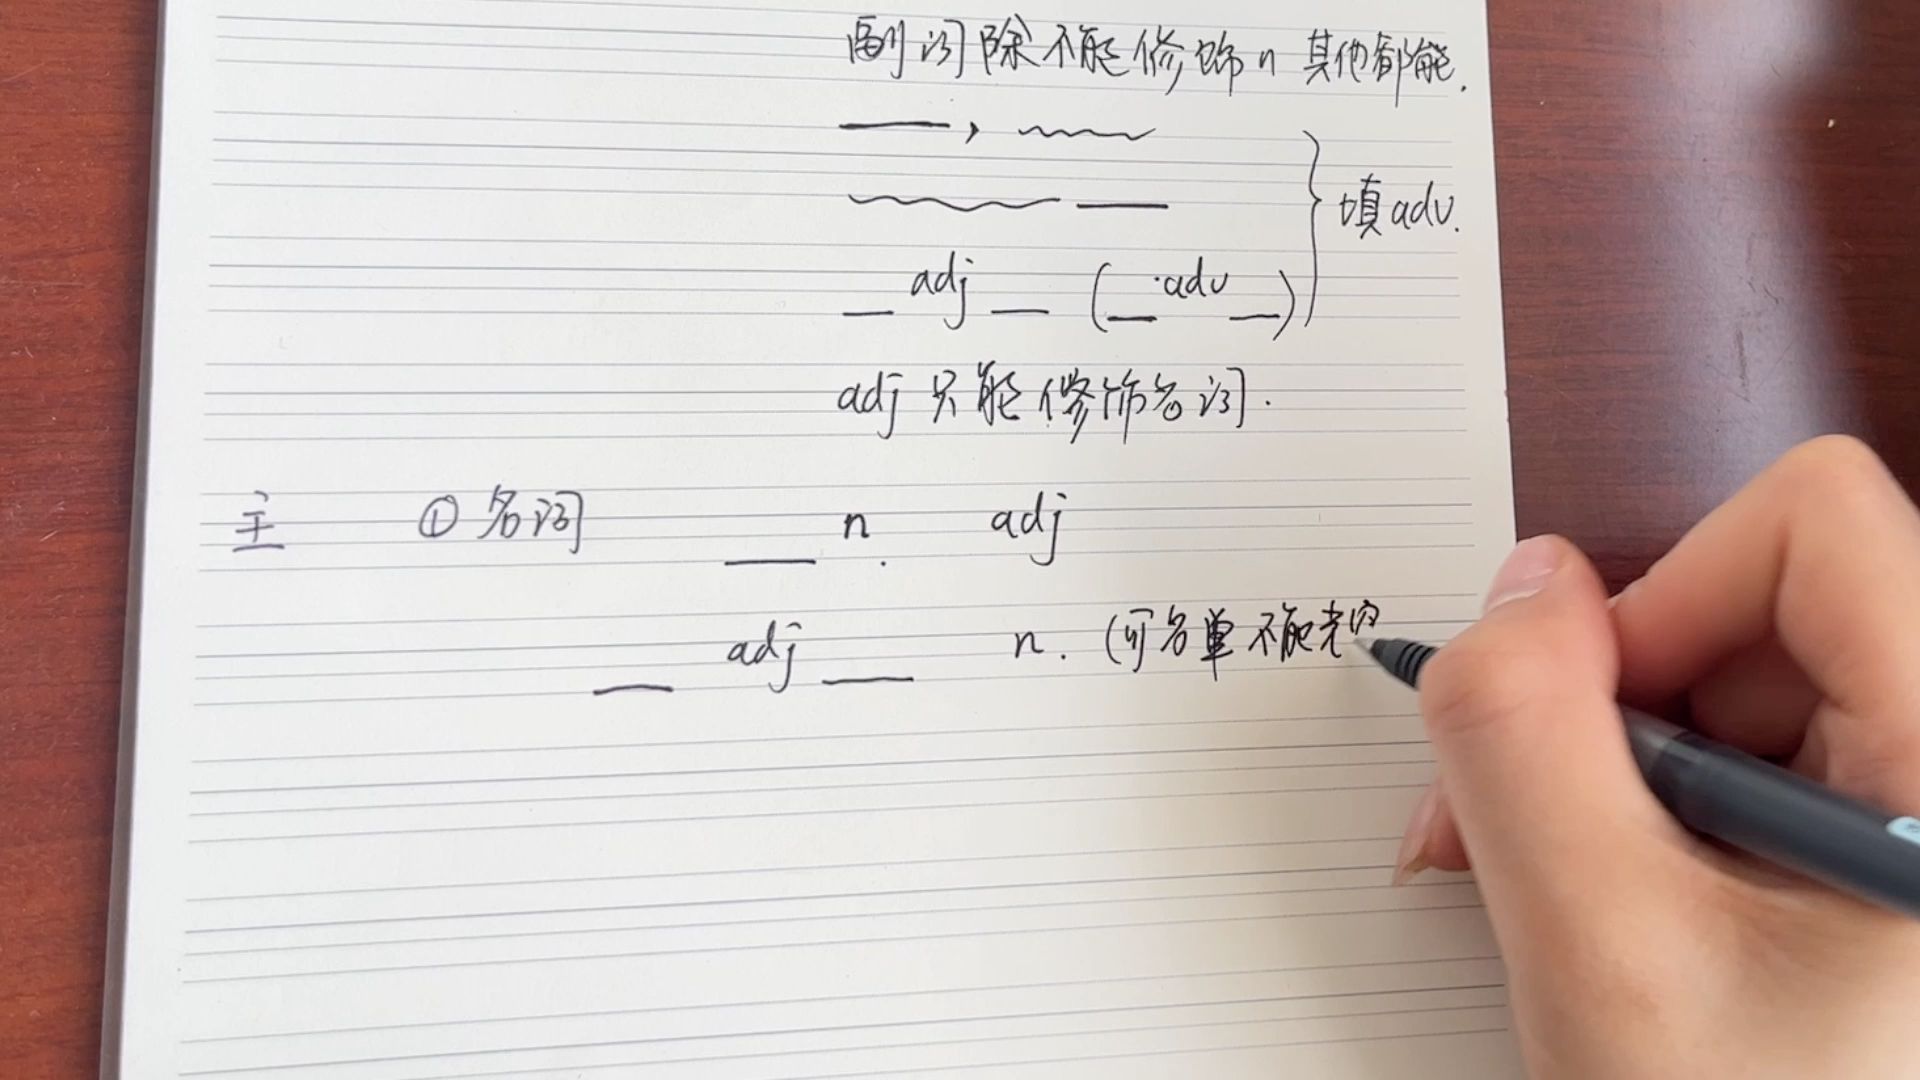 副词除不能修饰n 其他都能.
——, ~~~
~~~ ——
__ adj __ (__ adv __) } 填adv.
adj 只能修饰名词.
主 ① 名词 ___ n. adj
__ adj ___ n. (可名单不能